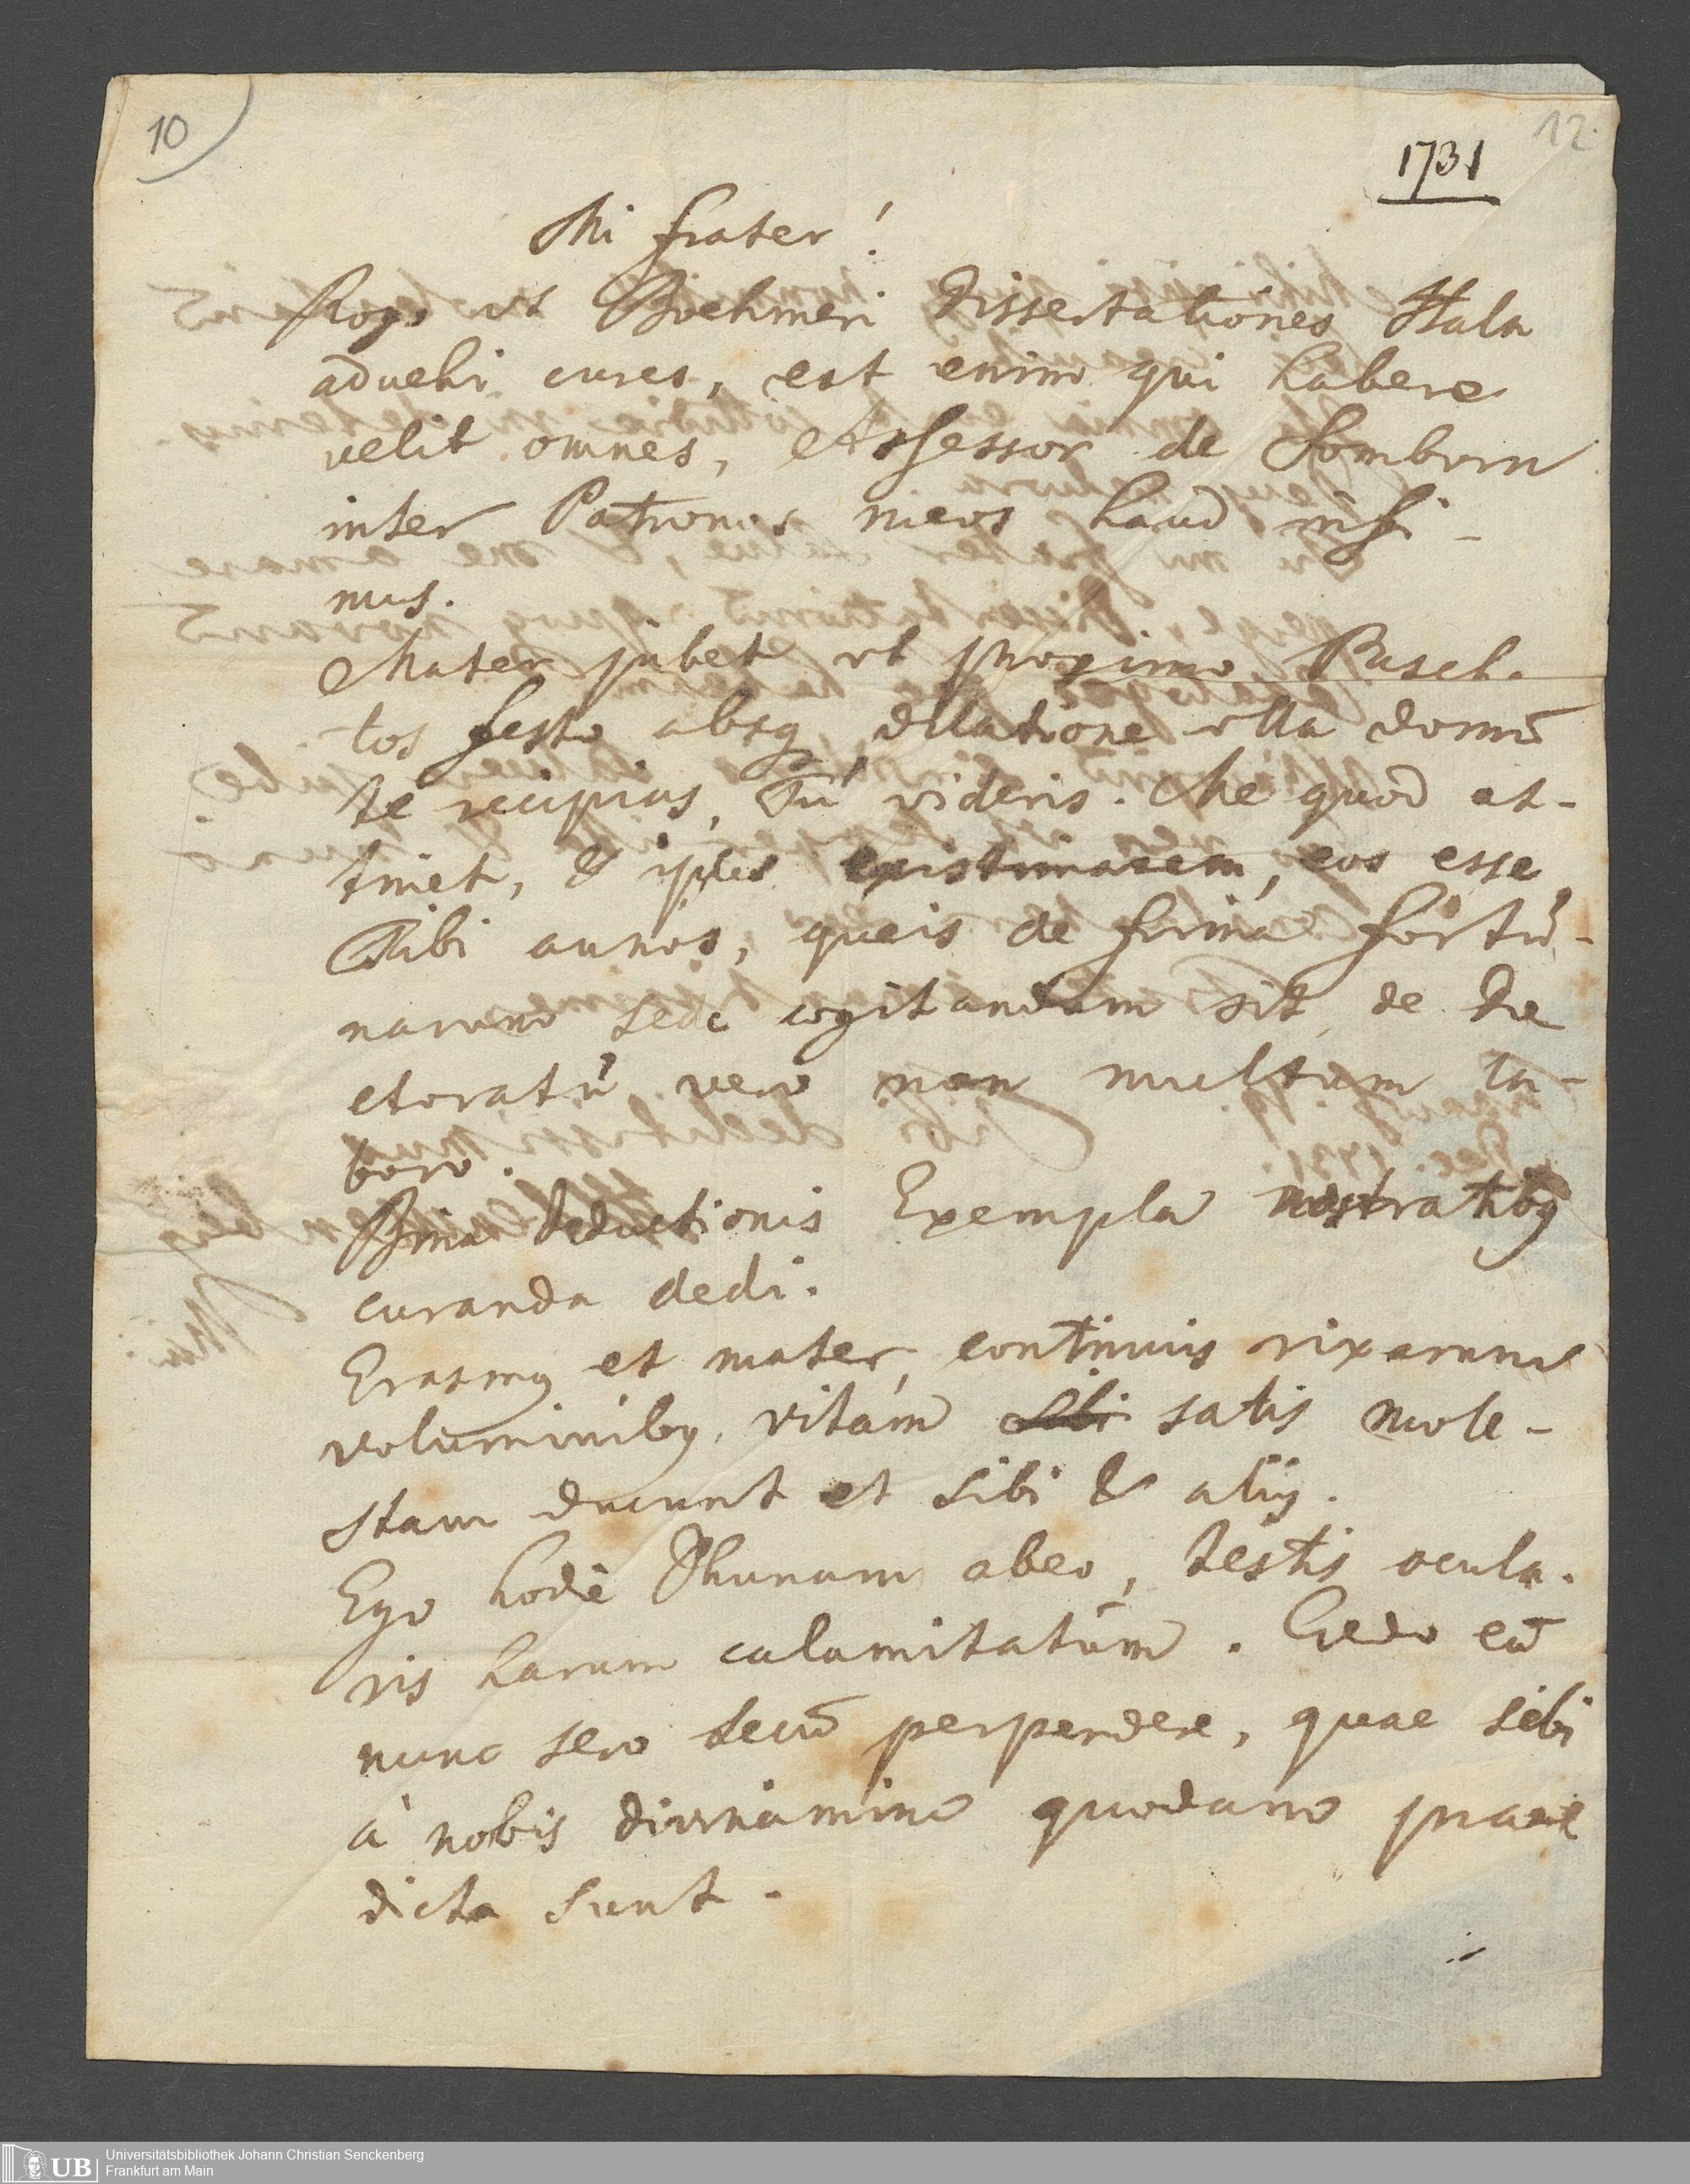 10
12
1731
Mi frater!
Rogo ut Boehmeri Dissertationes Hala
advehi cures, est enim qui habere
velit omnes, Assessor de Somborn
inter Patronos meos haud infi-
mus.
Mater jubet ut proximo Pascha
tos festo absq dilatione ulla domū
te recipias, Tu videris. Me quod at-
tinet, & ipse existimarem, eos esse
Tibi annos, queis de firma fortu-
narum sede cogitandum sit, de Do
ctoratu vero non multum la-
boro.
Bina deductionis Exempla nostratibq
curanda dedi.
Erasmq et mater, continuis rixarum
voluminibq, vitam satis mole-
stam ducunt et sibi & aliis.
Ego hodie Thunam abeo, testis ocula-
ris harum calamitatum. Credo eā
nunc sero secū perpendere, quae sibi
à nobis quodam prae
dicta sunt.
UB
Universitätsbibliothek Johann Christian Senckenberg
Frankfurt am Main